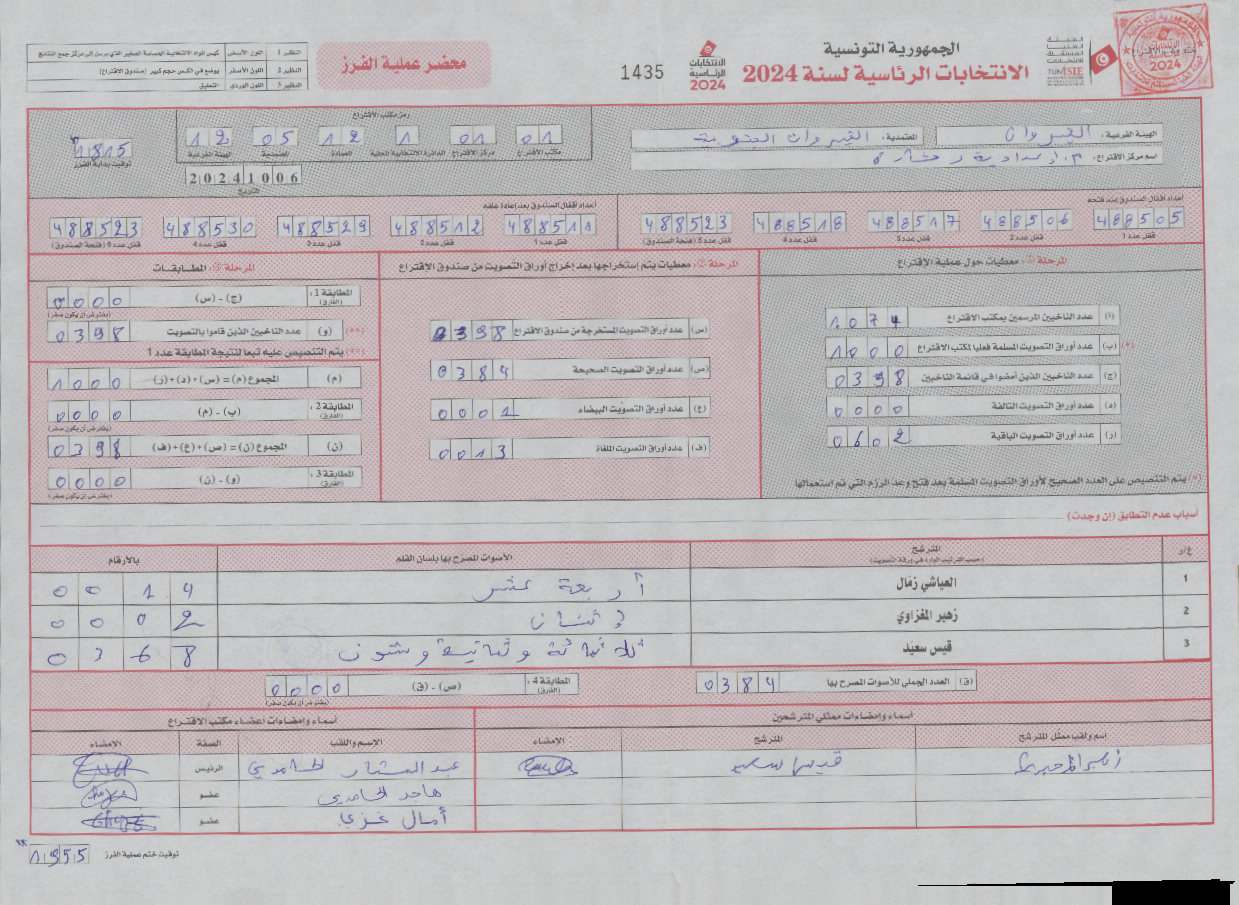 الجمهورية التونسية
الانتخابات الرئاسية لسنة 2024
الانتخابات الرئاسية 2024
1435
محضر عملية الفرز
النظير 1 اللون الأبيض
النظير 2 اللون الأصفر يوضع في الكيس حجم كبير (صندوق الاقتراع)
النظير 3 اللون الوردي التعليق
الهيئة الفرعية : القيروان
المعتمدية : القيروان الجنوبية
اسم مركز الاقتراع :
رمز مكتب الاقتراع
01 01 1 12 05 12
مكتب الاقتراع مركز الاقتراع الدائرة الانتخابية المحلية العمادة المعتمدية الهيئة الفرعية
20241006
التاريخ
1815
توقيت بداية الفرز
أعداد أقفال الصندوق عند فتحه
488505 488506 488517 488518 488523
قفل عدد 1 قفل عدد 2 قفل عدد 3 قفل عدد 4 قفل عدد 5 (فتحة الصندوق)
أعداد أقفال الصندوق بعد إعادة غلقه
488511 488512 488529 488530 488523
قفل عدد 1 قفل عدد 2 قفل عدد 3 قفل عدد 4 قفل عدد 5 (فتحة الصندوق)
المرحلة ①: معطيات حول عملية الاقتراع
(أ) عدد الناخبين المرسمين بمكتب الاقتراع 1074
(*) (ب) عدد أوراق التصويت المسلمة فعليا لمكتب الاقتراع 1000
(ج) عدد الناخبين الذين أمضوا في قائمة الناخبين 0398
(د) عدد أوراق التصويت التالفة 0000
(ر) عدد أوراق التصويت الباقية 0602
(*) يتم التنصيص على العدد الصحيح لأوراق التصويت المسلمة بعد فتح وعد الرزم التي تم استعمالها
المرحلة ②: معطيات يتم إستخراجها بعد إخراج أوراق التصويت من صندوق الاقتراع
(س) عدد أوراق التصويت المستخرجة من صندوق الاقتراع 0398
(ص) عدد أوراق التصويت الصحيحة 0384
(ع) عدد أوراق التصويت البيضاء 0001
(ف) عدد أوراق التصويت الملغاة 0013
المرحلة ③: المطابقات
المطابقة 1 : (الفارق) (ج) - (س) 0000
(يفترض أن يكون صفر)
(**) (و) عدد الناخبين الذين قاموا بالتصويت 0398
(**) يتم التنصيص عليه تبعا لنتيجة المطابقة عدد 1
(م) المجموع (م) = (س) + (د) + (ر) 1000
المطابقة 2 : (الفارق) (ب) - (م) 0000
(يفترض أن يكون صفر)
(ن) المجموع (ن) = (ص) + (ع) + (ف) 0398
المطابقة 3 : (الفارق) (و) - (ن) 0000
(يفترض أن يكون صفر)
أسباب عدم التطابق (إن وجدت)
ع/ر المترشح الأصوات المصرح بها بلسان القلم بالأرقام
(حسب الترتيب الوارد في ورقة التصويت)
1 العياشي زمال أربعة عشر 0014
2 زهير المغزاوي إثنان 0002
3 قيس سعيّد ثلاثمائة وثمانية وستون 0368
(ق) العدد الجملي للأصوات المصرح بها 0384
المطابقة 4 : (الفارق) (ص) - (ق) 0000
(يفترض أن يكون صفر)
أسماء وإمضاءات ممثلي المترشحين
أسماء وإمضاءات أعضاء مكتب الاقتراع
إسم ولقب ممثل المترشح المترشح الإمضاء
الإسم واللقب الصفة الإمضاء
قيس سعيد
عبد الستار الحامدي الرئيس
هاجر الحامدي عضو
أمال غزي عضو
توقيت ختم عملية الفرز 1955